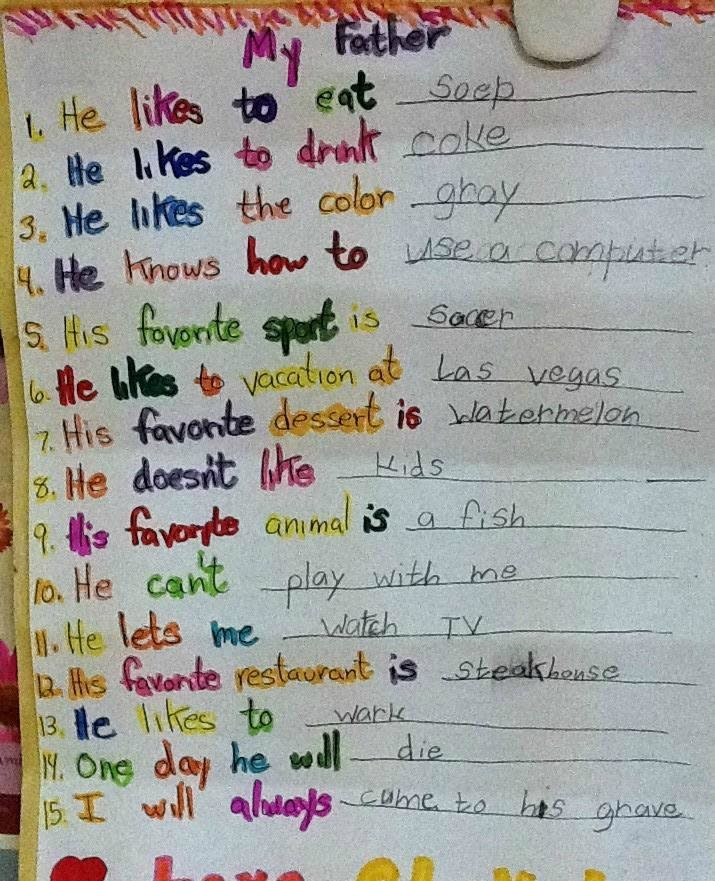 My Father
1. He likes to eat Soep
2. He likes to drink coke
3. He likes the color gray
4. He knows how to use a computer
5. His favorite sport is Soccer
6. He likes to vacation at Las vegas
7. His favorite dessert is Watermelon
8. He doesn't like Kids
9. His favorite animal is a fish
10. He can't play with me
11. He lets me Watch TV
12. His favorite restaurant is steakhouse
13. He likes to wark
14. One day he will die
15. I will always came to his grave